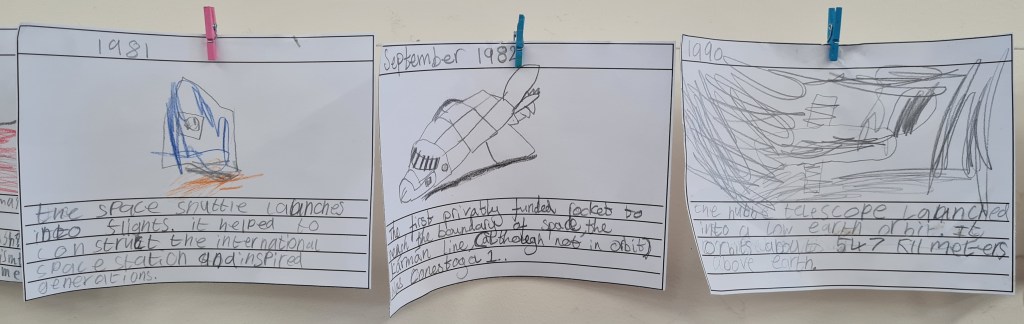 1981
the space shuttle launches
into flights. it helped to
construct the international
space station and inspired
generations.
September 1982
The first privatly funded rocket to
reach the boundary of space the
Karman line, (although not in orbit)
was Conestoga 1.
1990
the hubble telescope launched
into a low earth orbit. It
orbits about 547 kilmeters
above earth.